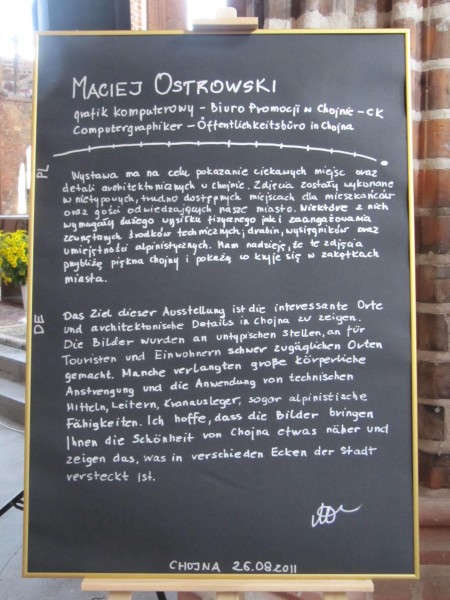 MACIEJ OSTROWSKI
grafik komputerowy – Biuro Promocji w Chojnie – CK
Computergraphiker – Öffentlichkeitsbüro in Chojna
PL
Wystawa ma na celu pokazanie ciekawych miejsc oraz
detali architektonicznych w Chojnie. Zdjęcia zostały wykonane
w nietypowych, trudno dostępnych miejscach dla mieszkańców
oraz gości odwiedzających nasze miasto. Niektóre z nich
wymagały dużego wysiłku fizycznego jak i zaangażowania
zewnętrznych środków technicznych; drabin, wysięgników oraz
umiejętności alpinistycznych. Mam nadzieję, że te zdjęcia
przybliżą piękna Chojny i pokażą co kryje się w zakątkach
miasta.
DE
Das Ziel dieser Ausstellung ist die interessante Orte
und architektonische Details in Chojna zu zeigen.
Die Bilder wurden an untypischen Stellen, an für
Touristen und Einwohnern schwer zugäglichen Orten
gemacht. Manche verlangten große körperliche
Anstrengung und die Anwendung von technischen
Mitteln, Leitern, Kranausleger, sogar alpinistische
Fähigkeiten. Ich hoffe, dass die Bilder bringen
Ihnen die Schönheit von Chojna etwas näher und
zeigen das, was in verschieden Ecken der Stadt
versteckt ist.
CHOJNA 26.08.2011